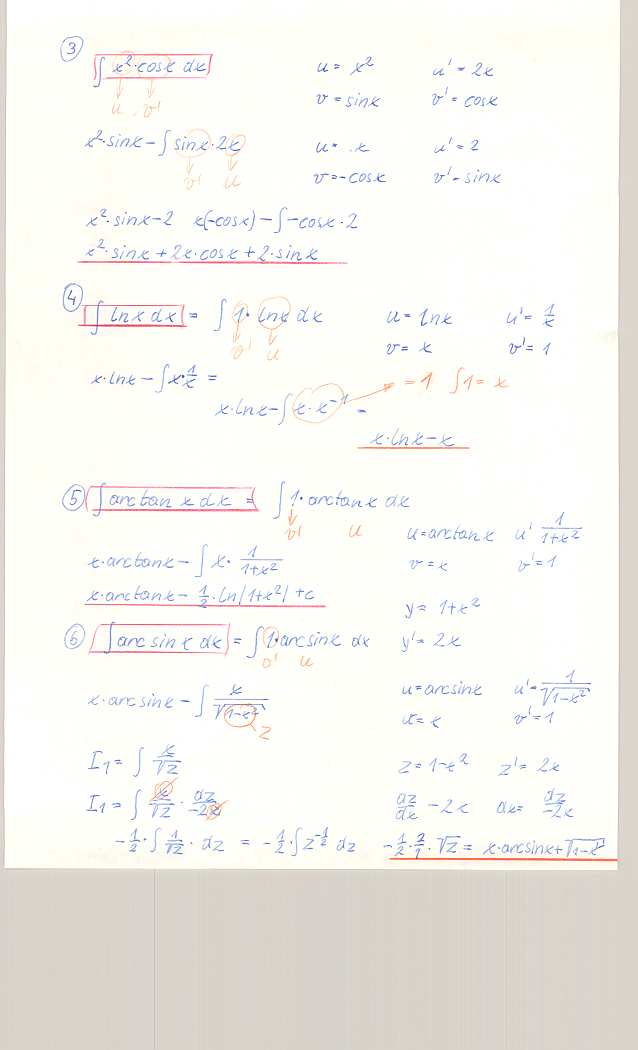 ③ ∫ x²·cosx dx    u = x²    u' = 2x
u v'    v = sinx    v' = cosx
x²·sinx - ∫ sinx·2x    u = .x    u' = 2
v' u    v = -cosx    v' = sinx
x²·sinx - 2  x(-cosx) - ∫ -cosx·2
x²·sinx + 2x·cosx + 2·sinx
④ ∫ lnx dx = ∫ 1·lnx dx    u = lnx    u' = 1/x
v' u    v = x    v' = 1
x·lnx - ∫ x·1/x =    = 1  ∫1 = x
x·lnx - ∫ x·x⁻¹ =
x·lnx - x
⑤ ∫ arctan x dx = ∫ 1·arctanx dx
v' u    u = arctanx    u' 1/(1+x²)
x·arctanx - ∫ x· 1/(1+x²)    v = x    v' = 1
x·arctanx - 1/2·ln|1+x²| + c    y = 1+x²
⑥ ∫ arcsinx dx = ∫ 1·arcsinx dx    y' = 2x
v' u
x·arcsinx - ∫ x/√(1-x²)    u = arcsinx    u' = 1/√(1-x²)
z    v = x    v' = 1
I₁ = ∫ x/√z    z = 1-x²    z' = 2x
I₁ = ∫ x/√z · dz/-2x    dz/dx - 2x    dx = dz/-2x
-1/2·∫ 1/√z · dz = -1/2·∫ z^-1/2 dz    -1/2·2/1·√z = x·arcsinx + √(1-x²)